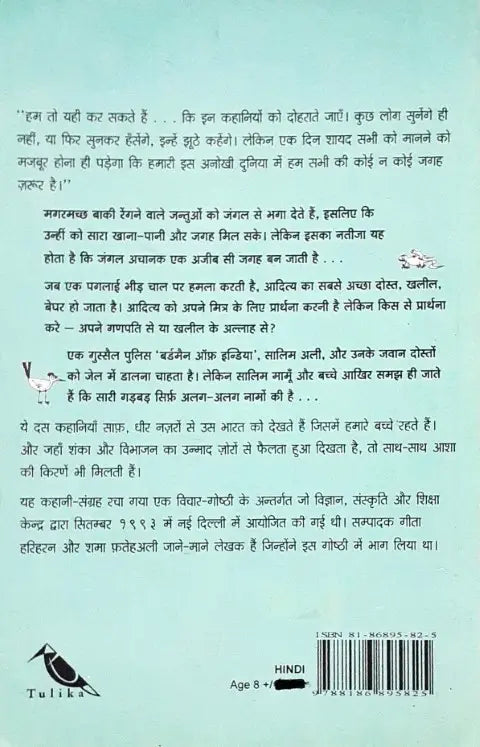 "हम तो यही कर सकते हैं . . . कि इन कहानियों को दोहराते जाएँ। कुछ लोग सुनेंगे ही
नहीं, या फिर सुनकर हँसेंगे, इन्हें झूठे कहेंगे। लेकिन एक दिन शायद सभी को मानने को
मजबूर होना ही पड़ेगा कि हमारी इस अनोखी दुनिया में हम सभी की कोई न कोई जगह
ज़रूर है।"
मगरमच्छ बाकी रेंगने वाले जन्तुओं को जंगल से भगा देते हैं, इसलिए कि
उन्हीं को सारा खाना-पानी और जगह मिल सके। लेकिन इसका नतीजा यह
होता है कि जंगल अचानक एक अजीब सी जगह बन जाती है . . .
जब एक पगलाई भीड़ चाल पर हमला करती है, आदित्य का सबसे अच्छा दोस्त, खलील,
बेघर हो जाता है। आदित्य को अपने मित्र के लिए प्रार्थना करनी है लेकिन किस से प्रार्थना
करे – अपने गणपति से या खलील के अल्लाह से?
एक गुस्सैल पुलिस 'बर्डमैन ऑफ़ इन्डिया', सालिम अली, और उनके जवान दोस्तों
को जेल में डालना चाहता है। लेकिन सालिम मामूँ और बच्चे आखिर समझ ही जाते
हैं कि सारी गड़बड़ सिर्फ़ अलग-अलग नामों की है . . .
ये दस कहानियाँ साफ़, धीर नज़रों से उस भारत को देखते हैं जिसमें हमारे बच्चे रहते हैं।
और जहाँ शंका और विभाजन का उन्माद ज़ोरों से फैलता हुआ दिखता है, तो साथ-साथ आशा
की किरणें भी मिलती हैं।
यह कहानी-संग्रह रचा गया एक विचार-गोष्ठी के अन्तर्गत जो विज्ञान, संस्कृति और शिक्षा
केन्द्र द्वारा सितम्बर १९९३ में नई दिल्ली में आयोजित की गई थी। सम्पादक गीता
हरिहरन और शमा फ़तेहअली जाने-माने लेखक हैं जिन्होंने इस गोष्ठी में भाग लिया था।
Tulika
HINDI
Age 8 +/
ISBN 81-86895-82-5
9788186895825